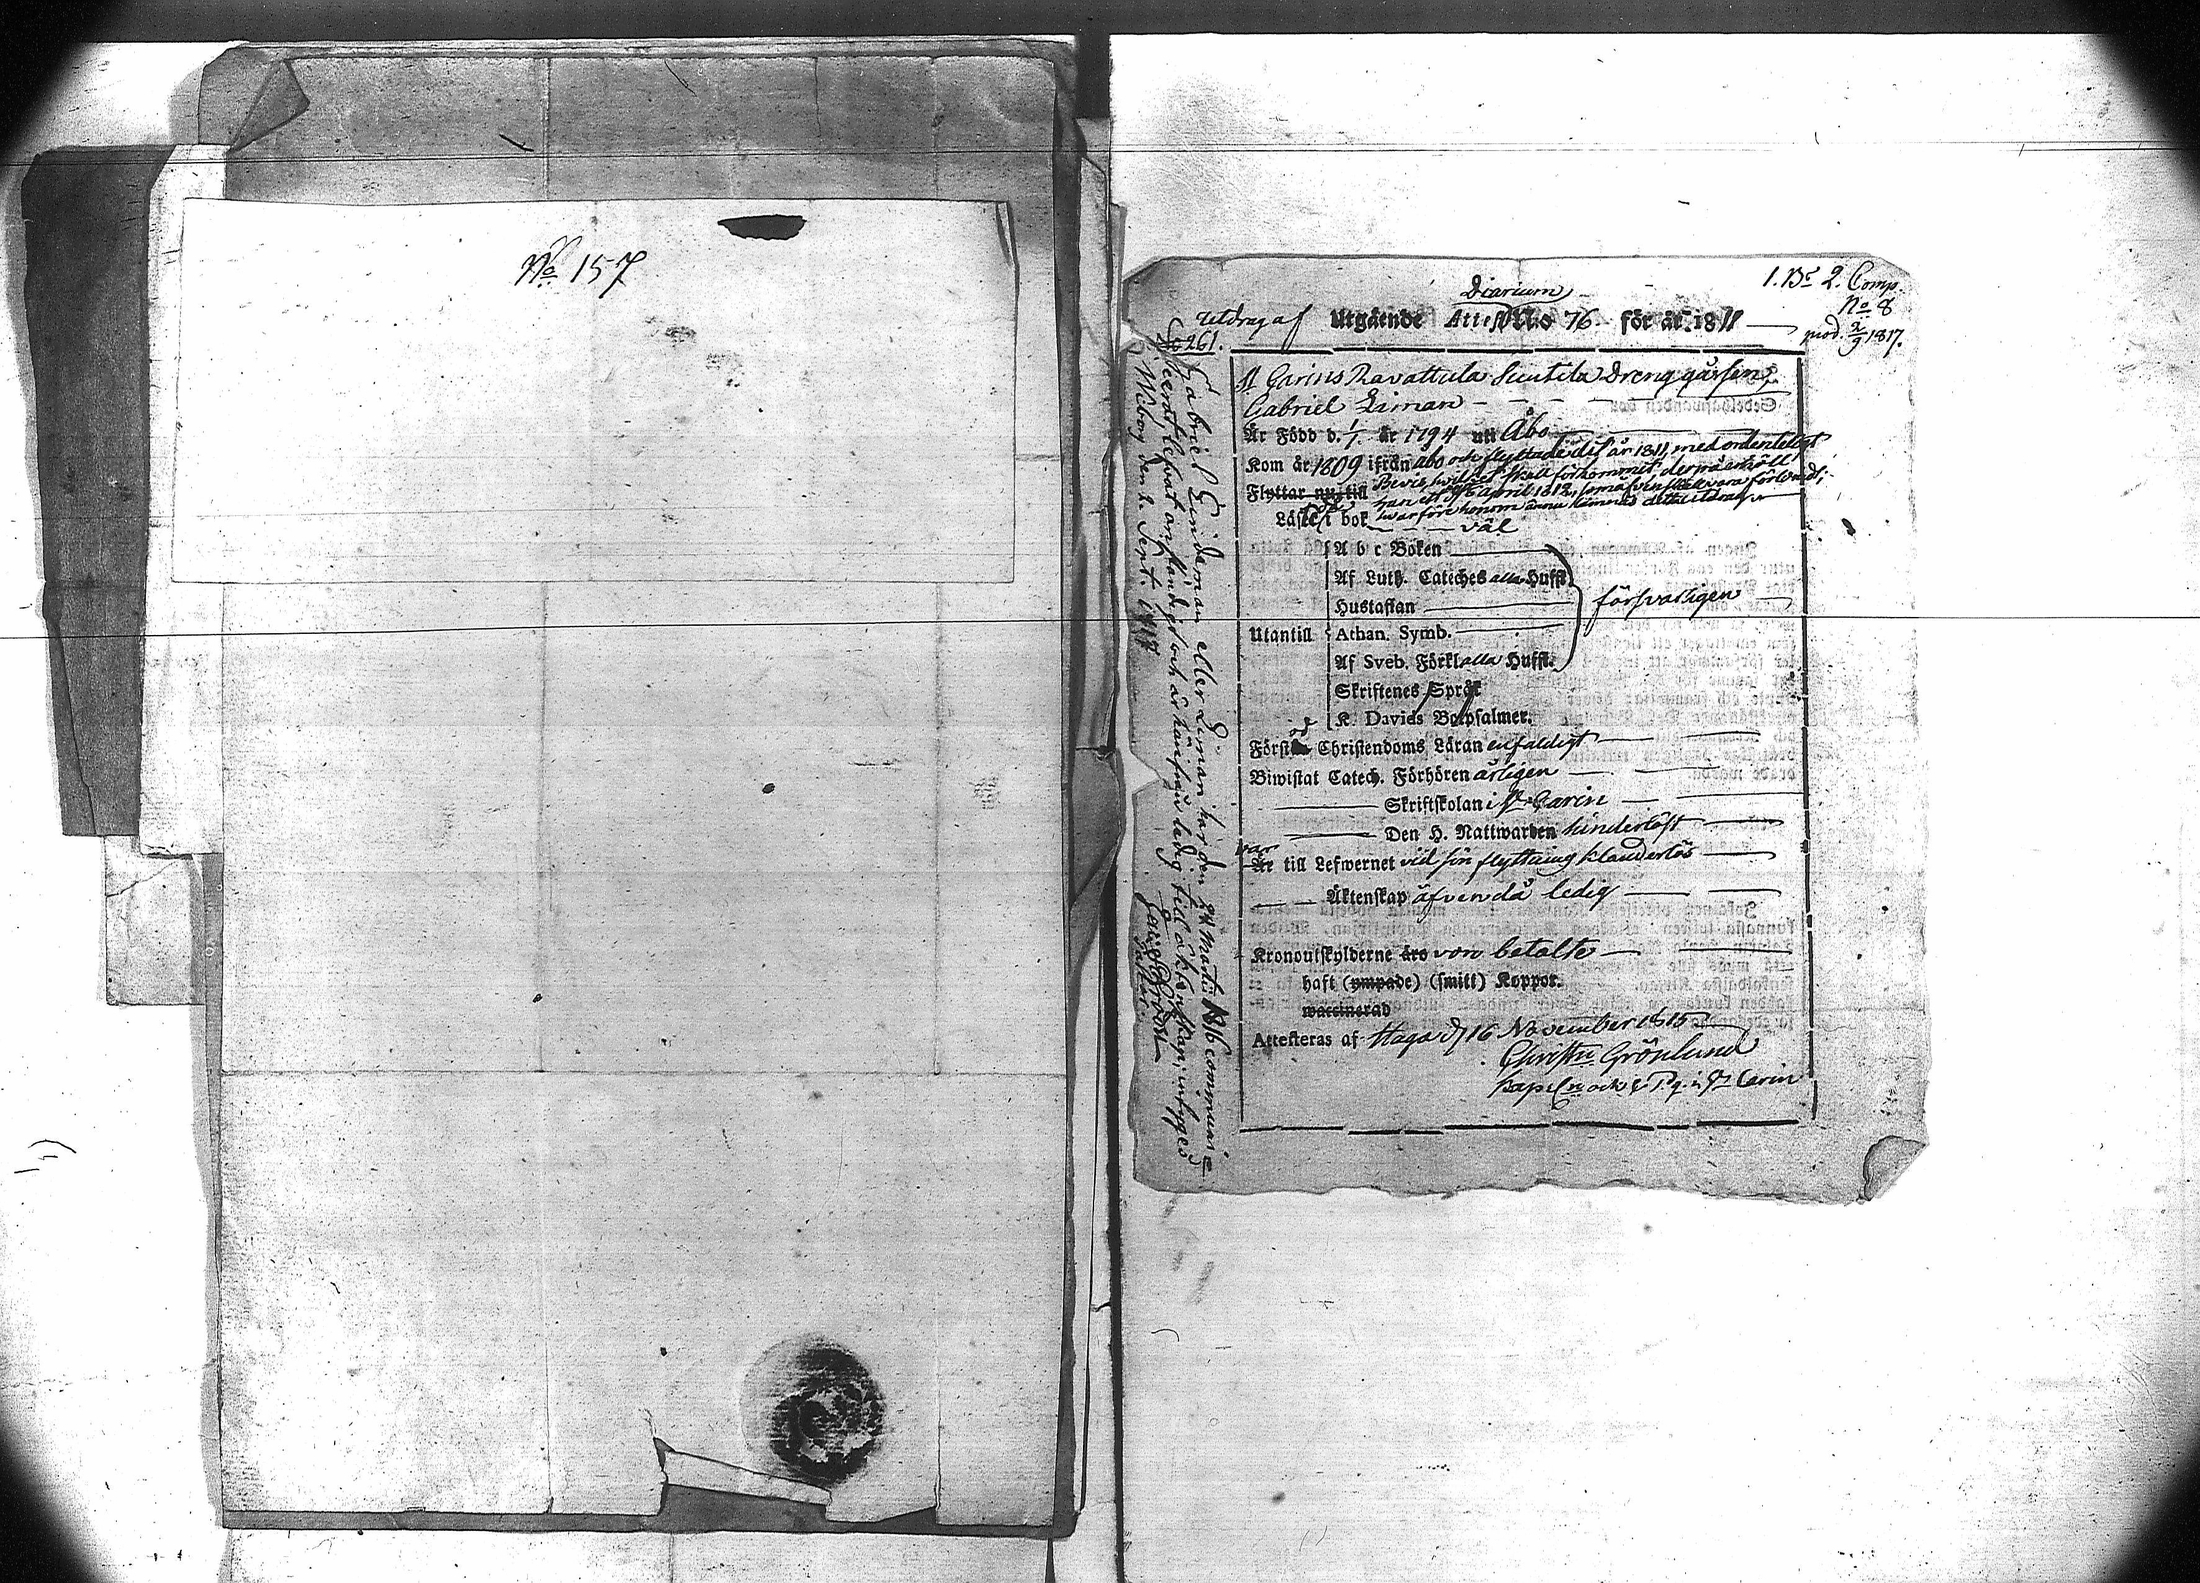 No 157
1. Bt 2. Comp.
No 8
prod. 2/9 1817.
Diarium
Utdrag af Utgående Attest No 76 för år 1811
No 261.
St Carins Ravattula Suutila Drenggåssen,
Gabriel Liman
Är Född d. 1/1 år 1794 uti Åbo
Kom år 1809 ifrån Åbo och flyttade dit år 1811, med ordenteligt
Flyttar nu till Bevis, hvilket skall förkommit, derpå erhöll
han ett af 6 April 1812, som äfven skall vara förlorad,
hvarföre honom ännu lämnas detta Utdrag
Läste i bok väl
A b c Boken
Af Luth. Cateches alla Hufst.
Hustaflan
förfvarligen
Utantill Athan. Symb.
Af Sveb. Förkl alla Hufst.
Skriftenes Språk
K. Davids Botpsalmer.
Förstod Christendoms Läran enfaldigt
Biwistat Catech. Förhören årligen
Skriftskolan i St Carin
Den H. Nattwarden hinderlöst
var
Är till Lefwernet vid sin flyttning klanderlös
Äktenskap äfven då ledig
Kronoutskylderne äro voro betalte
haft (ympade) (smitt) Koppor.
waccinerad
Attesteras af Haga d. 16 November 1815
Christn Grönlund
Kapeln och v. P. i St Carin
Gabriel Lindeman eller Liman har den 24 Martii 1816 communi-
cerat, lefvat anständigt och är härifrån ledig till äktenskap; intygas
Wiborg den 2. Sept. 1817.
Pastor.